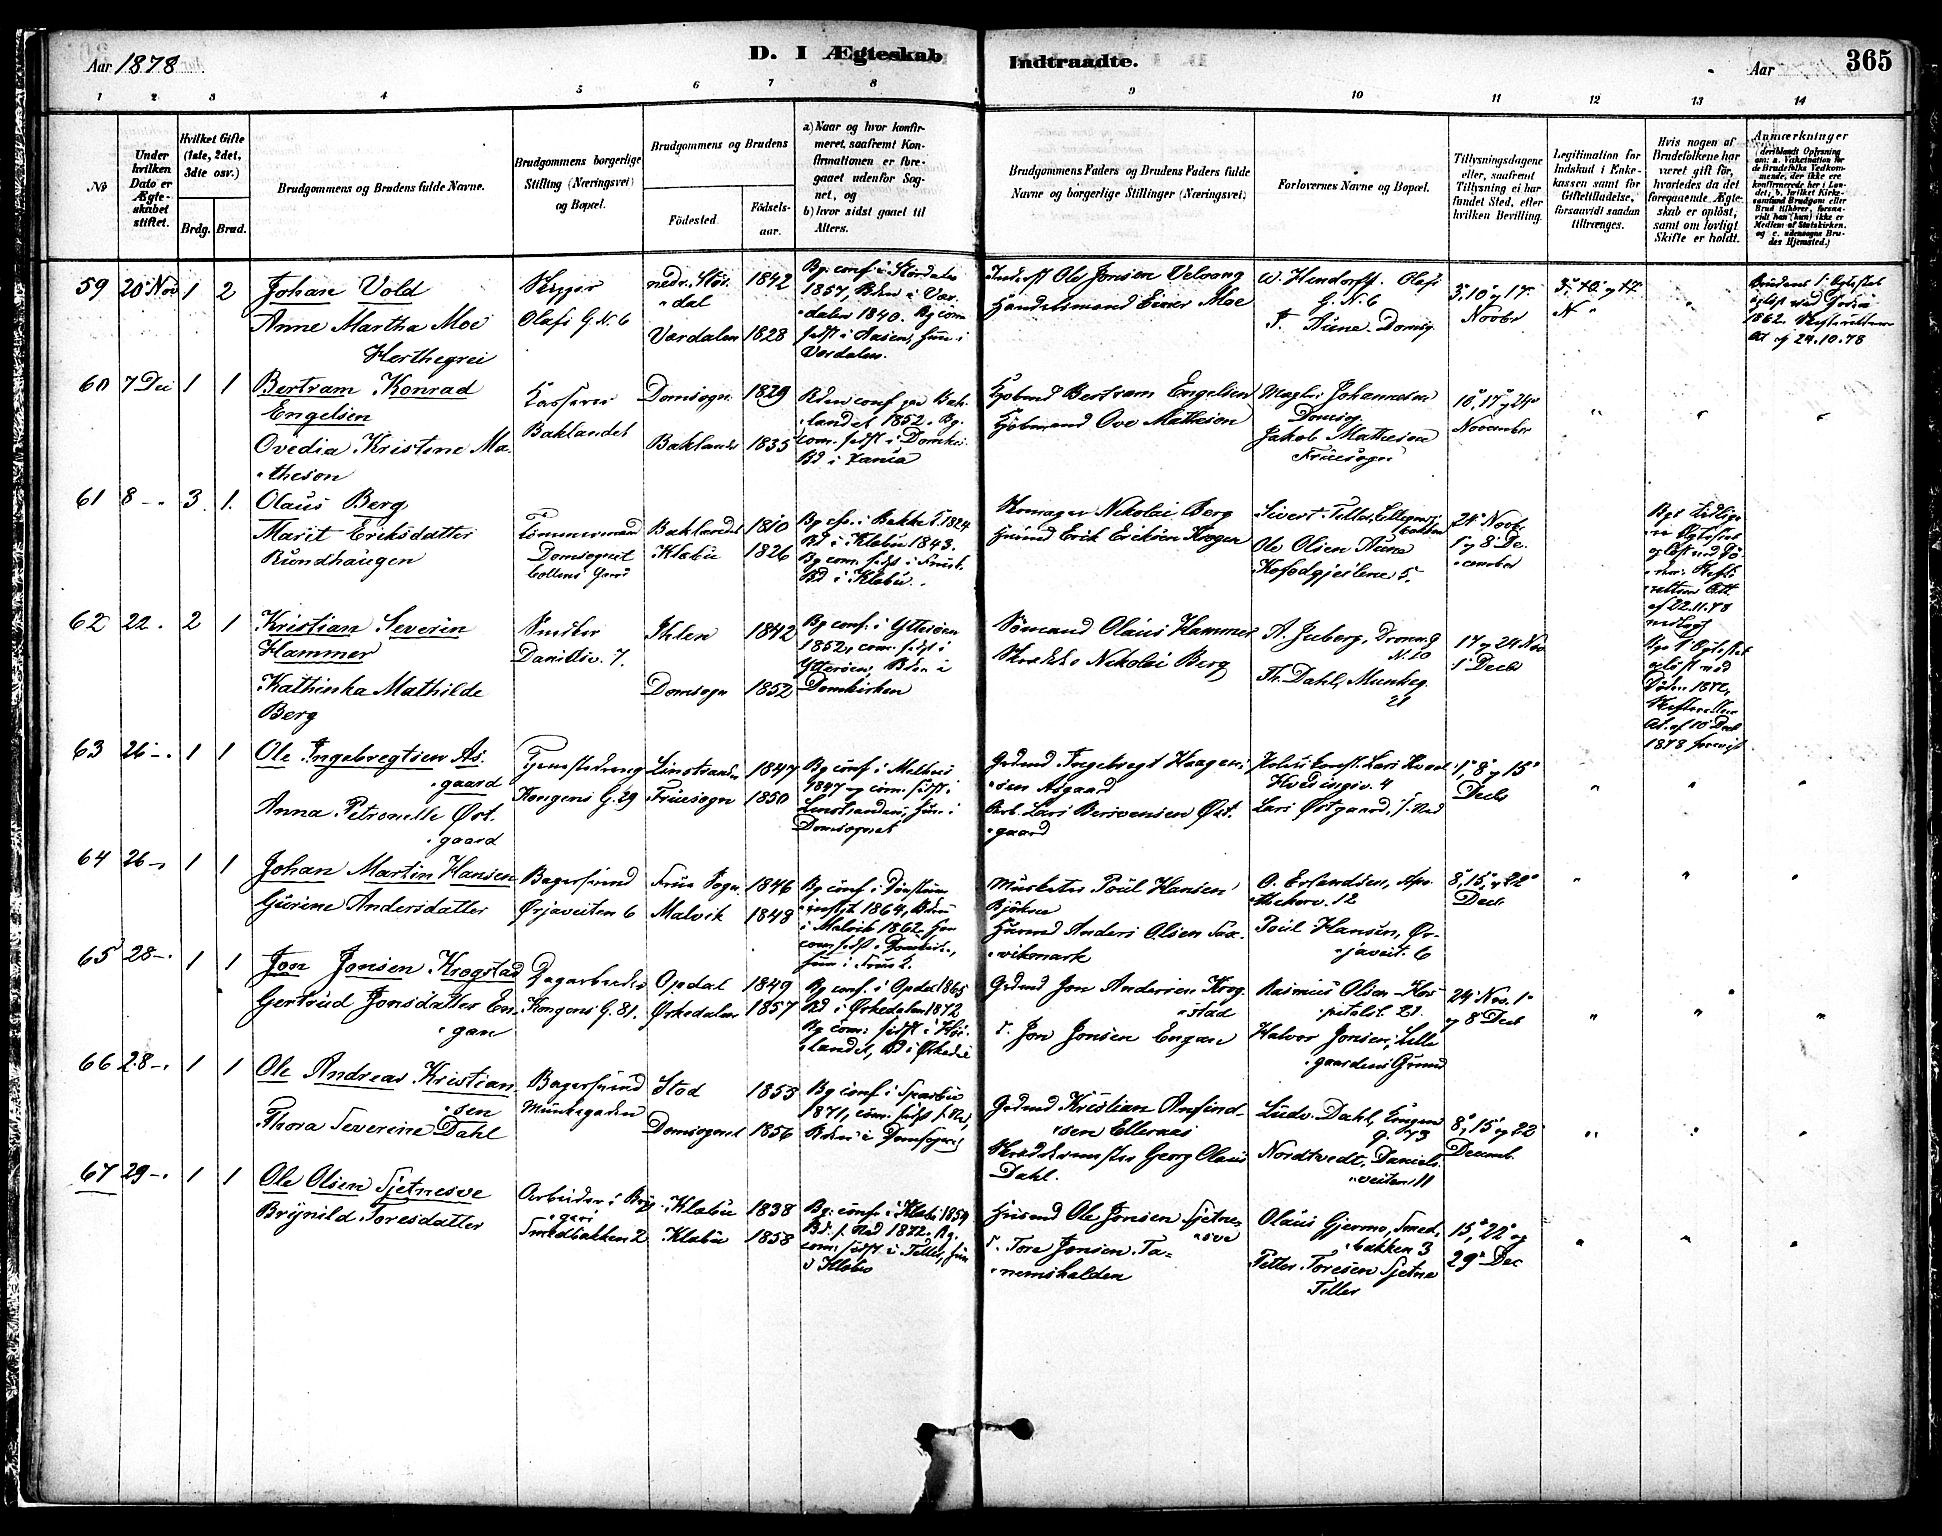 Aar 1878
D. I Ægteskab Indtraadte.
Aar
365
1 2 3 4 5 6 7 8 9 10 11 12 13 14
No
Under hvilken Dato er Ægteskabet stiftet.
Hvilket Gifte (1ste, 2det, 3die osv.)
Brdg. Brud.
Brudgommens og Brudens fulde Navne.
Brudgommens borgerlige Stilling (Næringsvei) og Bopæl.
Brudgommens og Brudens
Fødested.
Fødsels-aar.
a) Naar og hvor konfirmeret, saafremt Konfirmationen er foregaaet udenfor Sognet, og
b) hvor sidst gaaet til Alters.
Brudgommens Faders og Brudens Faders fulde Navne og borgerlige Stillinger (Næringsvei)
Forlovernes Navne og Bopæl.
Tillysningsdagene eller, saafremt Tillysning ei har fundet Sted, efter hvilken Bevilling.
Legitimation for Indskud i Enkekassen samt for Giftetilladelse, forsaavidt saadan tiltrænges.
Hvis nogen af Brudefolkene har været gift før, hvorledes da det foregaaende Ægteskab er opløst, samt om lovligt Skifte er holdt.
Anmærkninger
59 20 Nov 1 2
Johan Vold
Anne Martha Moe
Herthegrei
Skipper
Olafs G. N. 6
nedr. Stør.
dal 1842
Værdalen 1828
Bg. conf. i Stördalen
1857, Bden i Vær.
dalen 1840. Bg com
sidst i Aasen, hun i
Værdalen.
Inderst Ole Jonsen Velvang
Handelsmand Einer Moe
W. Hendorff. Olafs
G. N. 6
T. Aune. Domsg.
3, 10 og 17
Novbr
Brudens 1ste Egteskab
opløst ved Døden
1862. Skifterettens
Att af 24.10.78
60 7 Dec 1 1
Bertram Konrad
Engelsen
Ovedia Kristine Ma.
theson
Kasserer
Baklandet
Domsogn 1829
Baklandet 1835
Bden conf paa Bak.
landet 1852. Bg.
com. sidst i Domkir.
Bd i Vania
Kjøbmd Bertram Engelsen
Kjøbmand Ove Matheson
Mægler Johannesen
Domsog
Jakob Matheson
Fruesogn
10, 17 og 24
November
61 8 3 1
Olaus Berg
Marit Eriksdatter
Rundhaugen
Tømmermand
Domsognet
Baklandet 1810
Klæbu 1826
Bg cf. i Bakke K. 1824
Bd i Klæbu 1843.
Bg com. sidst i Fruek.
Bd i Klæbu.
Skomager Nikolai Berg
Husmd Erik Eriksen Krogen
Sivert Tiller,
Ole Olsen Aune
24 Novbr
1 og 8 De.
cember
af 22.11.78
62 22. 2 1
Kristian Severin
Hammer
Kathinka Mathilde
Berg
Snedker
Danielsv. 7.
Ihlen 1842
Domsogn 1852
Bg conf. i Ytterøen
1852, com. sidst i
Ytterøen, Bden i
Domkirken
Sømand Olaus Hammer
Skrædder Nikolai Berg
A. Juberg, Dronn. G
N. 20
Th. Dahl, Munkeg.
21
17 og 24 Nov
1 Decb
Bgs 1ste Egteskab
opløst ved
Døden 1872,
Skifteretten
At. af 10 Decb
1878 forevist
63 26 1 1
Ole Ingebregtsen As.
gaard
Anna Petronelle Øst.
gaard
Tjenestedreng
Kongens G. 29
Leinstranden 1847
Fruesogn 1850
Bg conf. i Melhus
1847 og com. sidst i
Leinstranden, hun i
Domsognet
Grdmd Ingebregt Haagen.
sen Asgaard
Arb. Lars Berivensen Øst.
gaard
Hvedingsv. 4
Lars Østgaard,
1, 8 og 15
Decb
64 26 1 1
Johan Martin Hansen
Gurine Andersdatter
Bagersvend
Ørjaveiten 6
Frue Sogn 1846
Malvik 1848
i Malvik 1862.
Musketer Poul Hansen
Bjøkne
Husmd Anders Olsen Sax.
vikmark
O. Erlandsen, Apo.
thekerv. 12
Poul Hansen, Ør.
javeit. 6
8, 15, og 22
Decb
65 28 1 1
Jon Jonsen Krogstad
Gertrud Jonsdatter En.
gan
Dagarbeider
Kongens G. 81.
Opdal 1849
Ørkedalen 1857
Bg conf. i Opdal 1865
Bd i Ørkedalen 1872
Grdmd Jon Andersen Krog.
stad
Jon Jonsen Engan
Rasmus Olsen - Hos.
pitalsl. 21.
Halvor Jonsen, Lille
gaardens Grund
24 Nov. 1
og 8 Decb
66 28 1 1
Ole Andreas Kristian.
sen
Thora Severine Dahl
Bagersvend
Munkegaden
Stod 1853
Domsognet 1856
Bg conf i Sparbu
1871,
Bden i Domsognet
Grdmd Kristian Arfind.
sen Elleraas
Skræddermester Georg Olaus
Dahl.
Ludv. Dahl, Enggen
g. 73
Nordtvedt, Daniels.
veiten 11
8, 15 og 22
Decemb.
67 29 1 1
Ole Olsen Sjetnesve
Brynild Toresdatter
Arbeider i Bryg.
geri
Smedbakken 2
Klæbu 1838
Klæbu 1858
Bg. conf. i Klæbu 1859
com. sidst i Tiller, hun
i Klæbu
Husmd Ole Jonsen Sjetne.
sve
Tore Jonsen Ta.
nemshalden
Olaus Gjermo, Smed.
bakken 3
Petter Toresen Sjetne
Tiller
15, 22 og
29 Dec